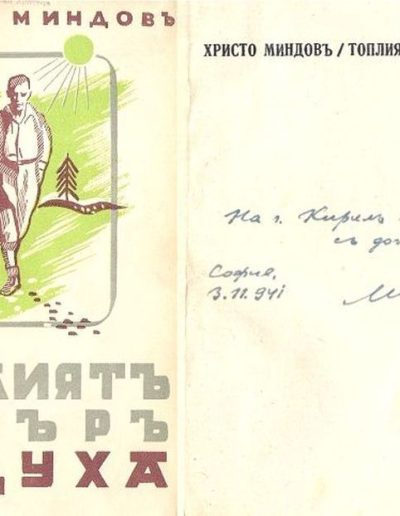 МИНДОВЪ
ИЯТЪ
ЪРЪ
ДУХА
ХРИСТО МИНДОВЪ / ТОПЛИЯ
На г. Кирилъ
съ
София,
3.11.941